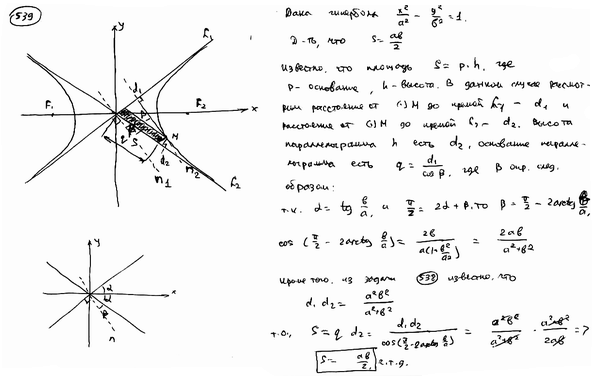 539
y
L₁
d₁
F₁
F₂
x
M
q
S
d₂
n₁
n₂
L₂
y
x
α
n
Дана гипербола x²/a² - y²/b² = 1.
Д-ть, что S = ab/2
Известно, что площадь S = p·h, где
p - основание, h - высота. В данном случае рассмот-
рим расстояние от (·) M до прямой - d₁ и
расстояние от (·) M до прямой - d₂. Высота
параллелограмма h есть d₂, основание паралле-
лограмма есть q = d₁/cos β, где β опр. след.
образом:
т.к. α = tg b/a, и π/2 = 2α + β, то β = π/2 - 2arctg b/a,
cos (π/2 - 2arctg b/a) = 2b/a(1+b²/a²) = 2ab/a²+b²
Кроме того, из задачи 538 известно, что
d₁ d₂ = a²b²/a²+b²
т.о., S = q d₂ = d₁d₂/cos(π/2-2arctg b/a) = a²b²/a²+b² · a²+b²/2ab =>
S = ab/2, ч.т.д.